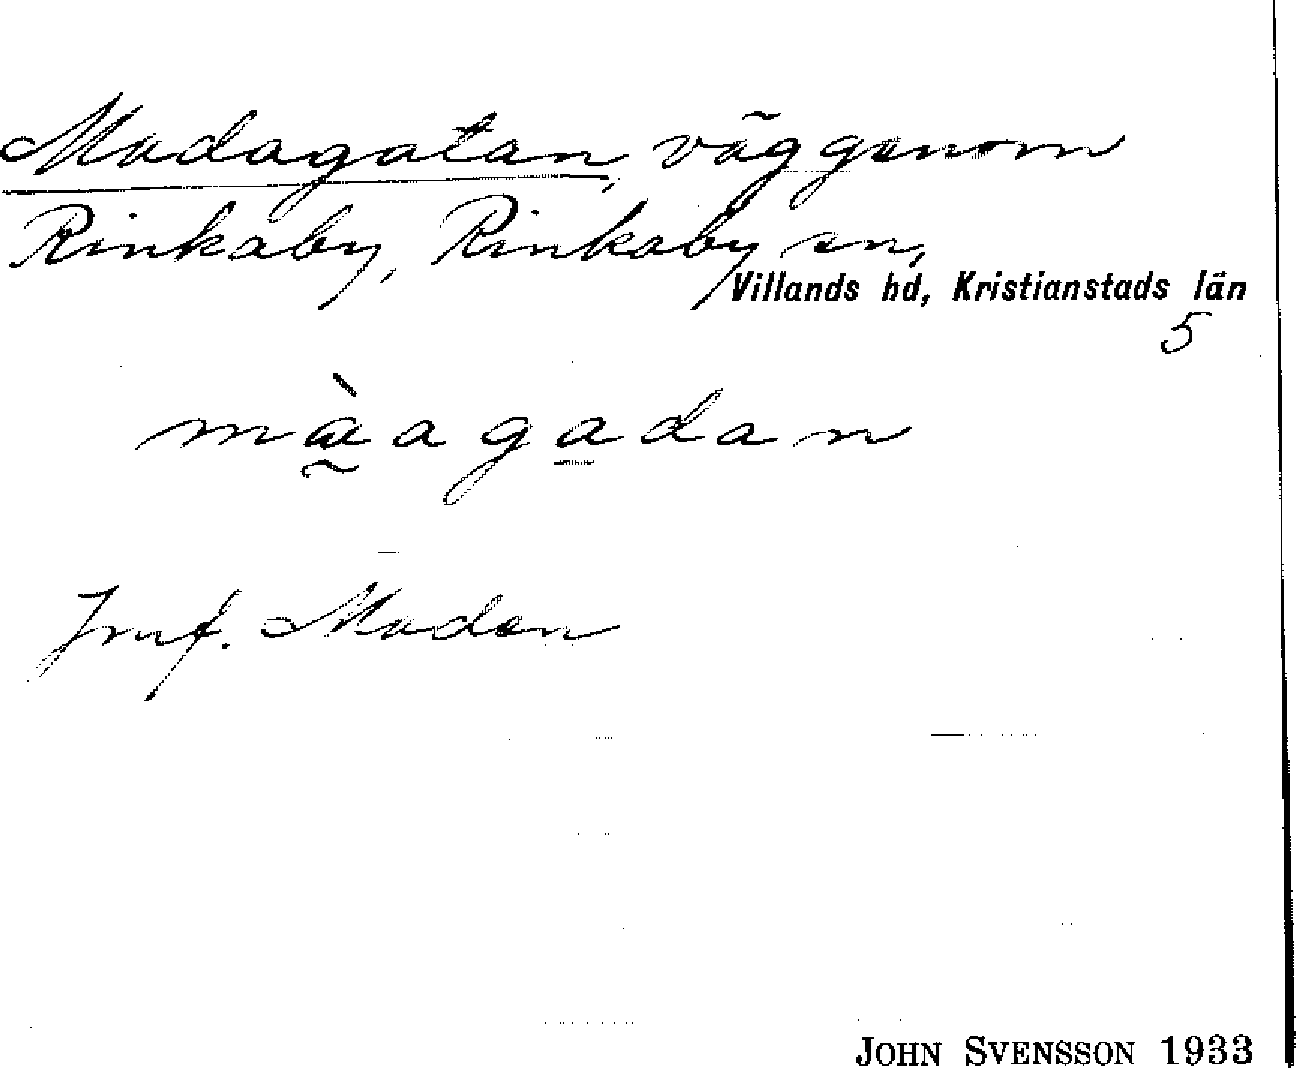 Madagatan, väg genom
Rinkaby, Rinkaby sn,
Villands hd, Kristianstads län
5
mæ̰̀aga̲dan
Jmf. Maden
JOHN SVENSSON 1933